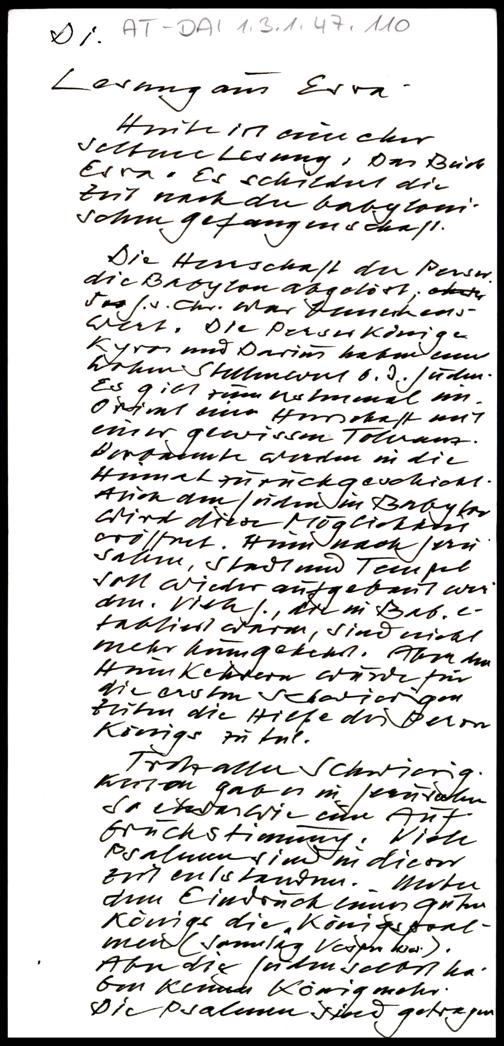 Di. AT-DAI 1.3.1.47.110
Lesung aus Esra.
Heute ist eine eher
seltene Lesung, Das Buch
Esra. Es schildert die
Zeit nach der babyloni-
schen gefangenschaft.
Die Herrschaft der Perser,
die Babylon abgelöst,
j.s. Chr. war bemerkens-
wert. Die Perserkönige
Kyros und Darius haben einen
hohen Stellenwert b. d. Juden.
Es gibt zum erstenmal im
Orient eine Herrschaft mit
einer gewissen Toleranz.
Verbannte werden in die
Heimat zurückgeschickt.
Auch den Juden in Babylon
wird diese Möglichkeit
eröffnet. Heim nach Jeru
salem, Stadt und Tempel
soll wieder aufgebaut wer-
den. Viele J., die in Bab. e-
tabliert waren, sind nicht
mehr heimgekehrt. Aber den
Heimkehrern wurde für
die ersten schwierigen
Zeiten die Hilfe des Perser
Königs zu teil.
Trotz aller Schwierig-
keiten gab es in Jerusalem
so etwas wie eine Auf-
bruchstimmung. Viele
Psalmen sind in dieser
Zeit entstanden. Unter
dem Eindruck eines guten
Königs die „Königspsal-
men (Sonntag Vesper
Aber die Juden selbst ha-
ben keinen König mehr.
Die Psalmen sind getragen